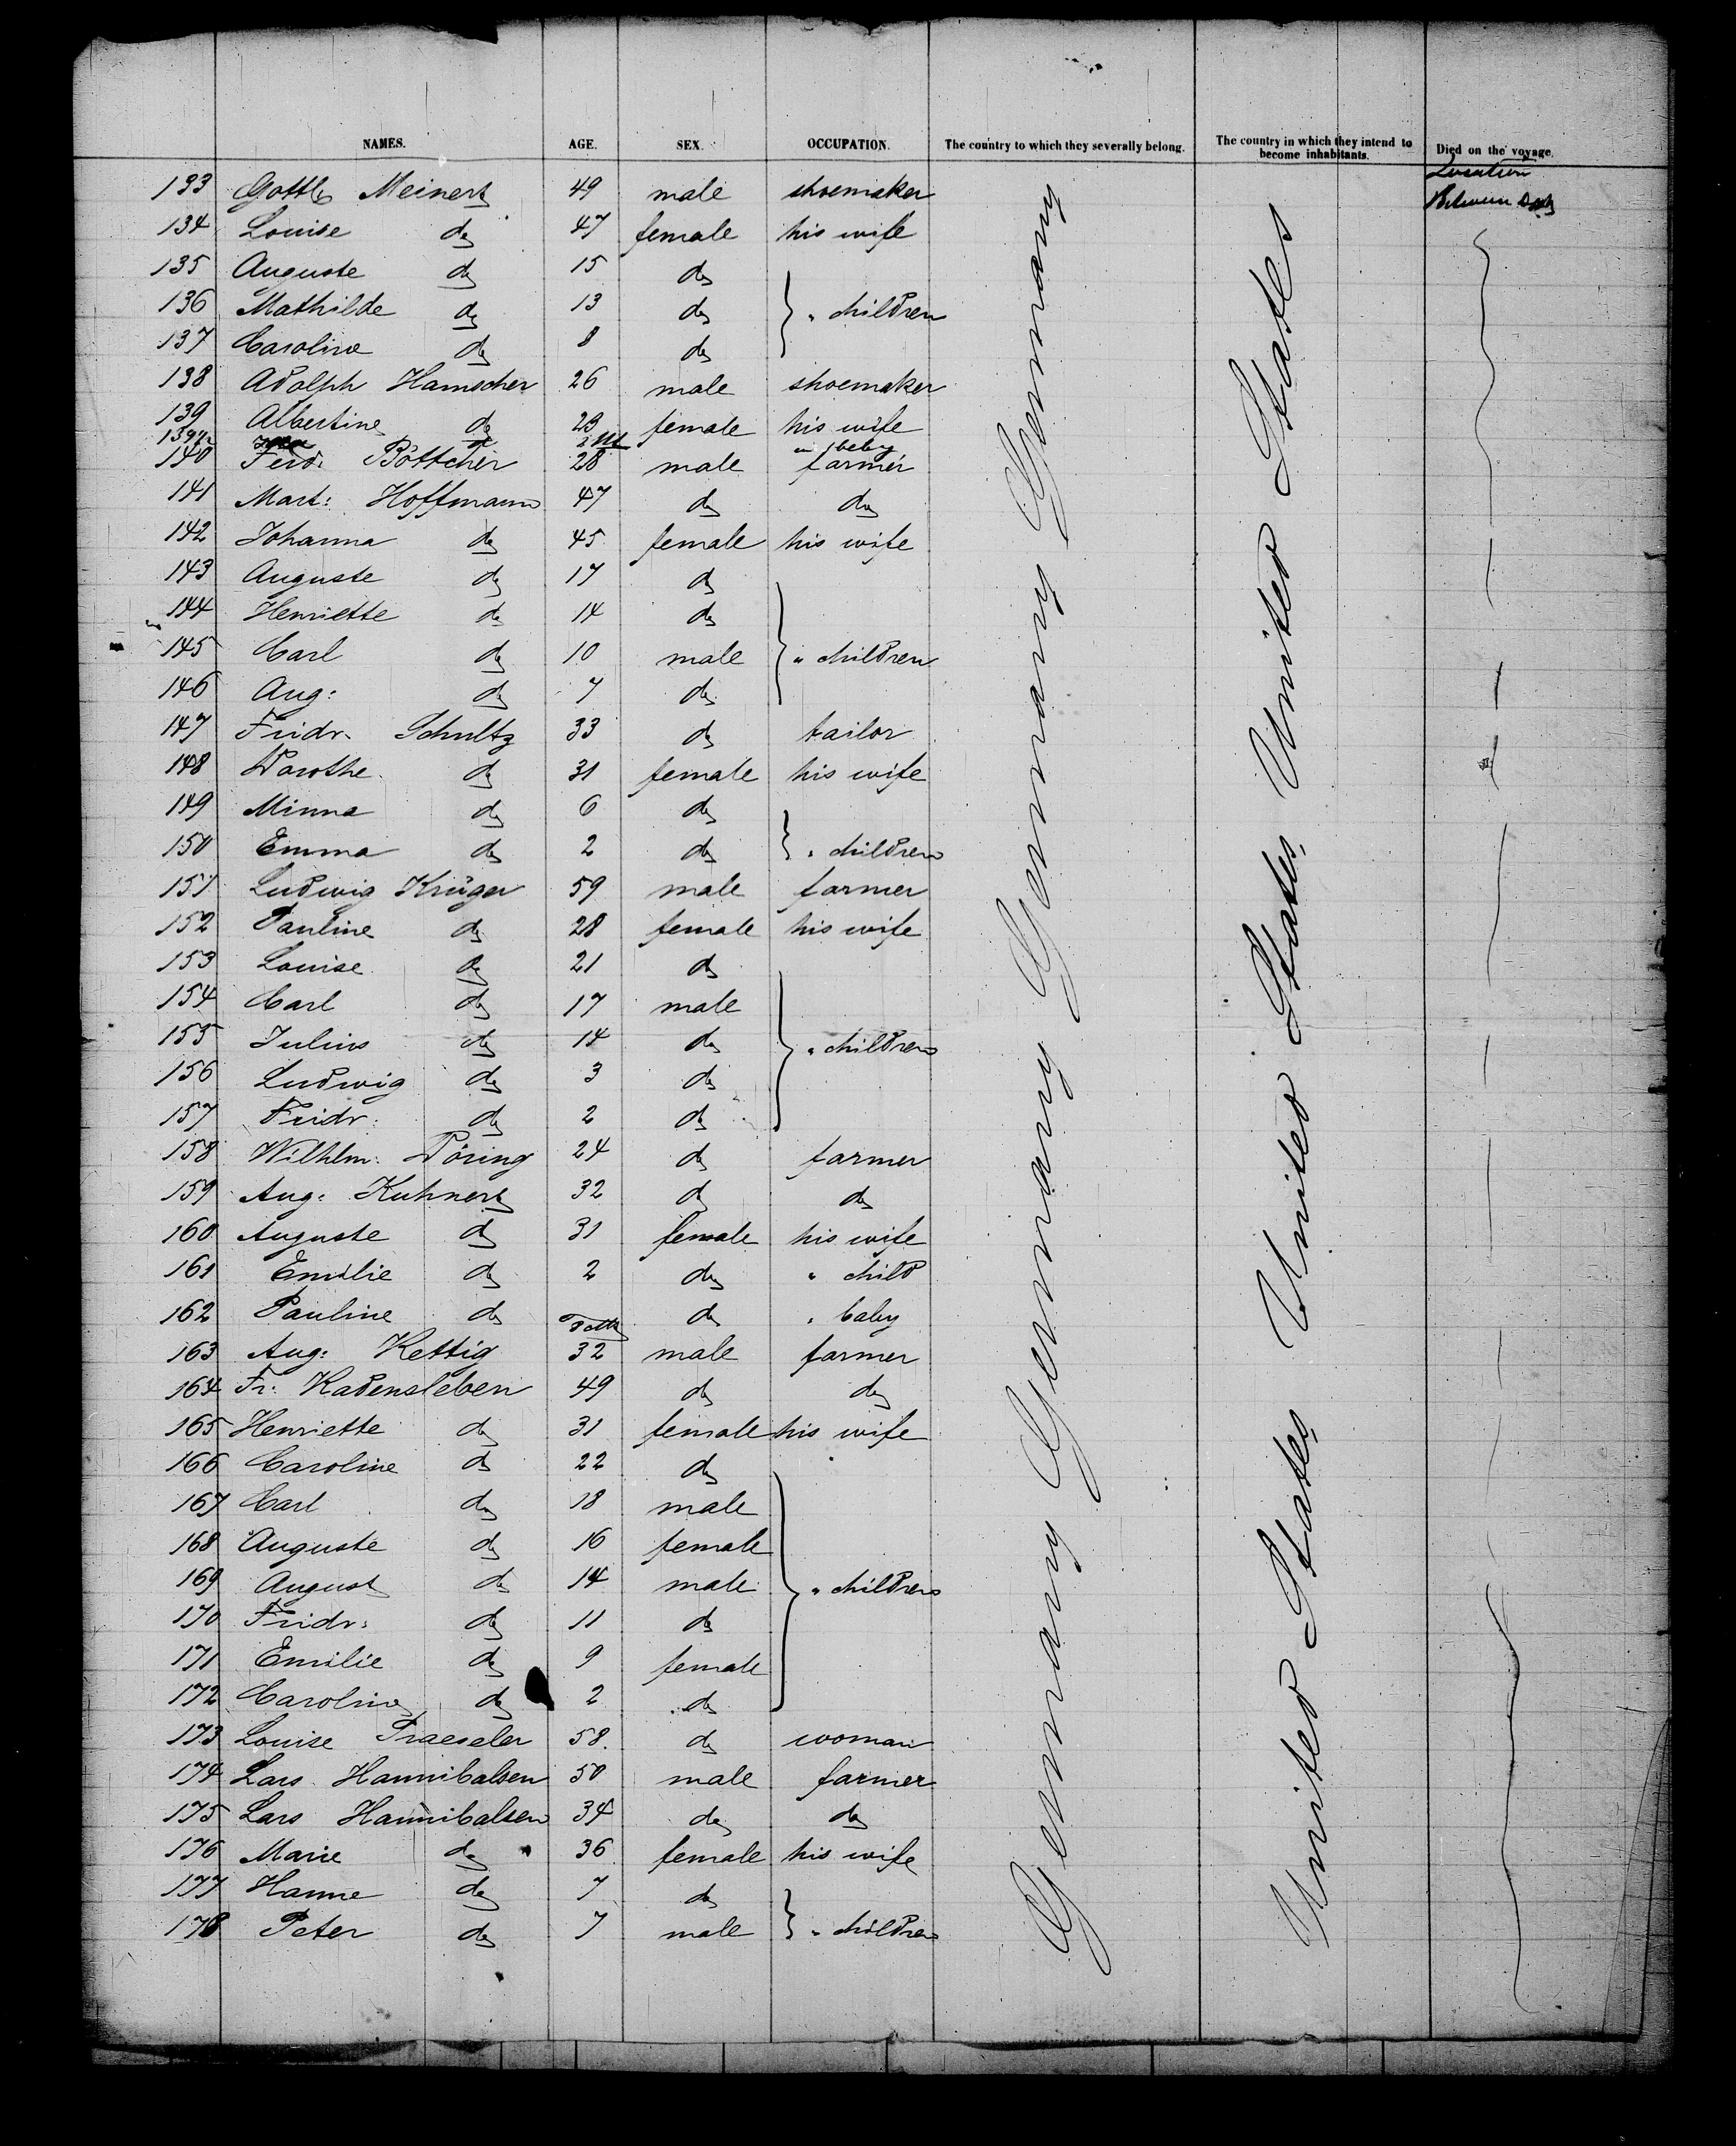 NAMES. AGE. SEX. OCCUPATION. The country to which they severally belong. The country in which they intend to become inhabitants. Died on the voyage.
Location
Between Deck
133 Gottl. Meinert 49 male shoemaker
134 Louise do 47 female his wife
135 Auguste do 15 do
136 Mathilde do 13 do " children
137 Caroline do 8 do
138 Adolph Hamscher 26 male shoemaker
139 Albertine do 23 female his wife
139½ do baby
140 Ferd. Böttcher 28 male farmer
141 Mart: Hoffmann 47 do do
142 Johanna do 45 female his wife
143 Auguste do 17 do
144 Henriette do 14 do
145 Carl do 10 male " children
146 Aug: do 7 do
147 Fridr. Schultz 33 do tailor
148 Dorothe. do 31 female his wife
149 Minna do 6 do
150 Emma do 2 do " children
151 Ludwig Krüger 59 male farmer
152 Pauline do 28 female his wife
153 Louise do 21 do
154 Carl do 17 male
155 Julius do 14 do " children
156 Ludwig do 3 do
157 Fridr: do 2 do
158 Wilhlm: Döring 24 do farmer
159 Aug: Kuhnert 32 do do
160 Auguste do 31 female his wife
161 Emilie do 2 do " child
162 Pauline do do " baby
163 Aug: Rettig 32 male farmer
164 Fr: Radensleben 49 do do
165 Henriette do 31 female his wife
166 Caroline do 22 do
167 Carl do 18 male
168 Auguste do 16 female
169 August do 14 male " children
170 Fridr: do 11 do
171 Emilie do 9 female
172 Caroline do 2 do
173 Louise Praeseler 58. do woman
174 Lars Hannibalsen 50 male farmer
175 Lars Hannibalsen 34 do do
176 Marie do 36 female his wife
177 Hanne do 7 do
178 Peter do 7 male " children
Germany Germany Germany Germany
United States United States United States